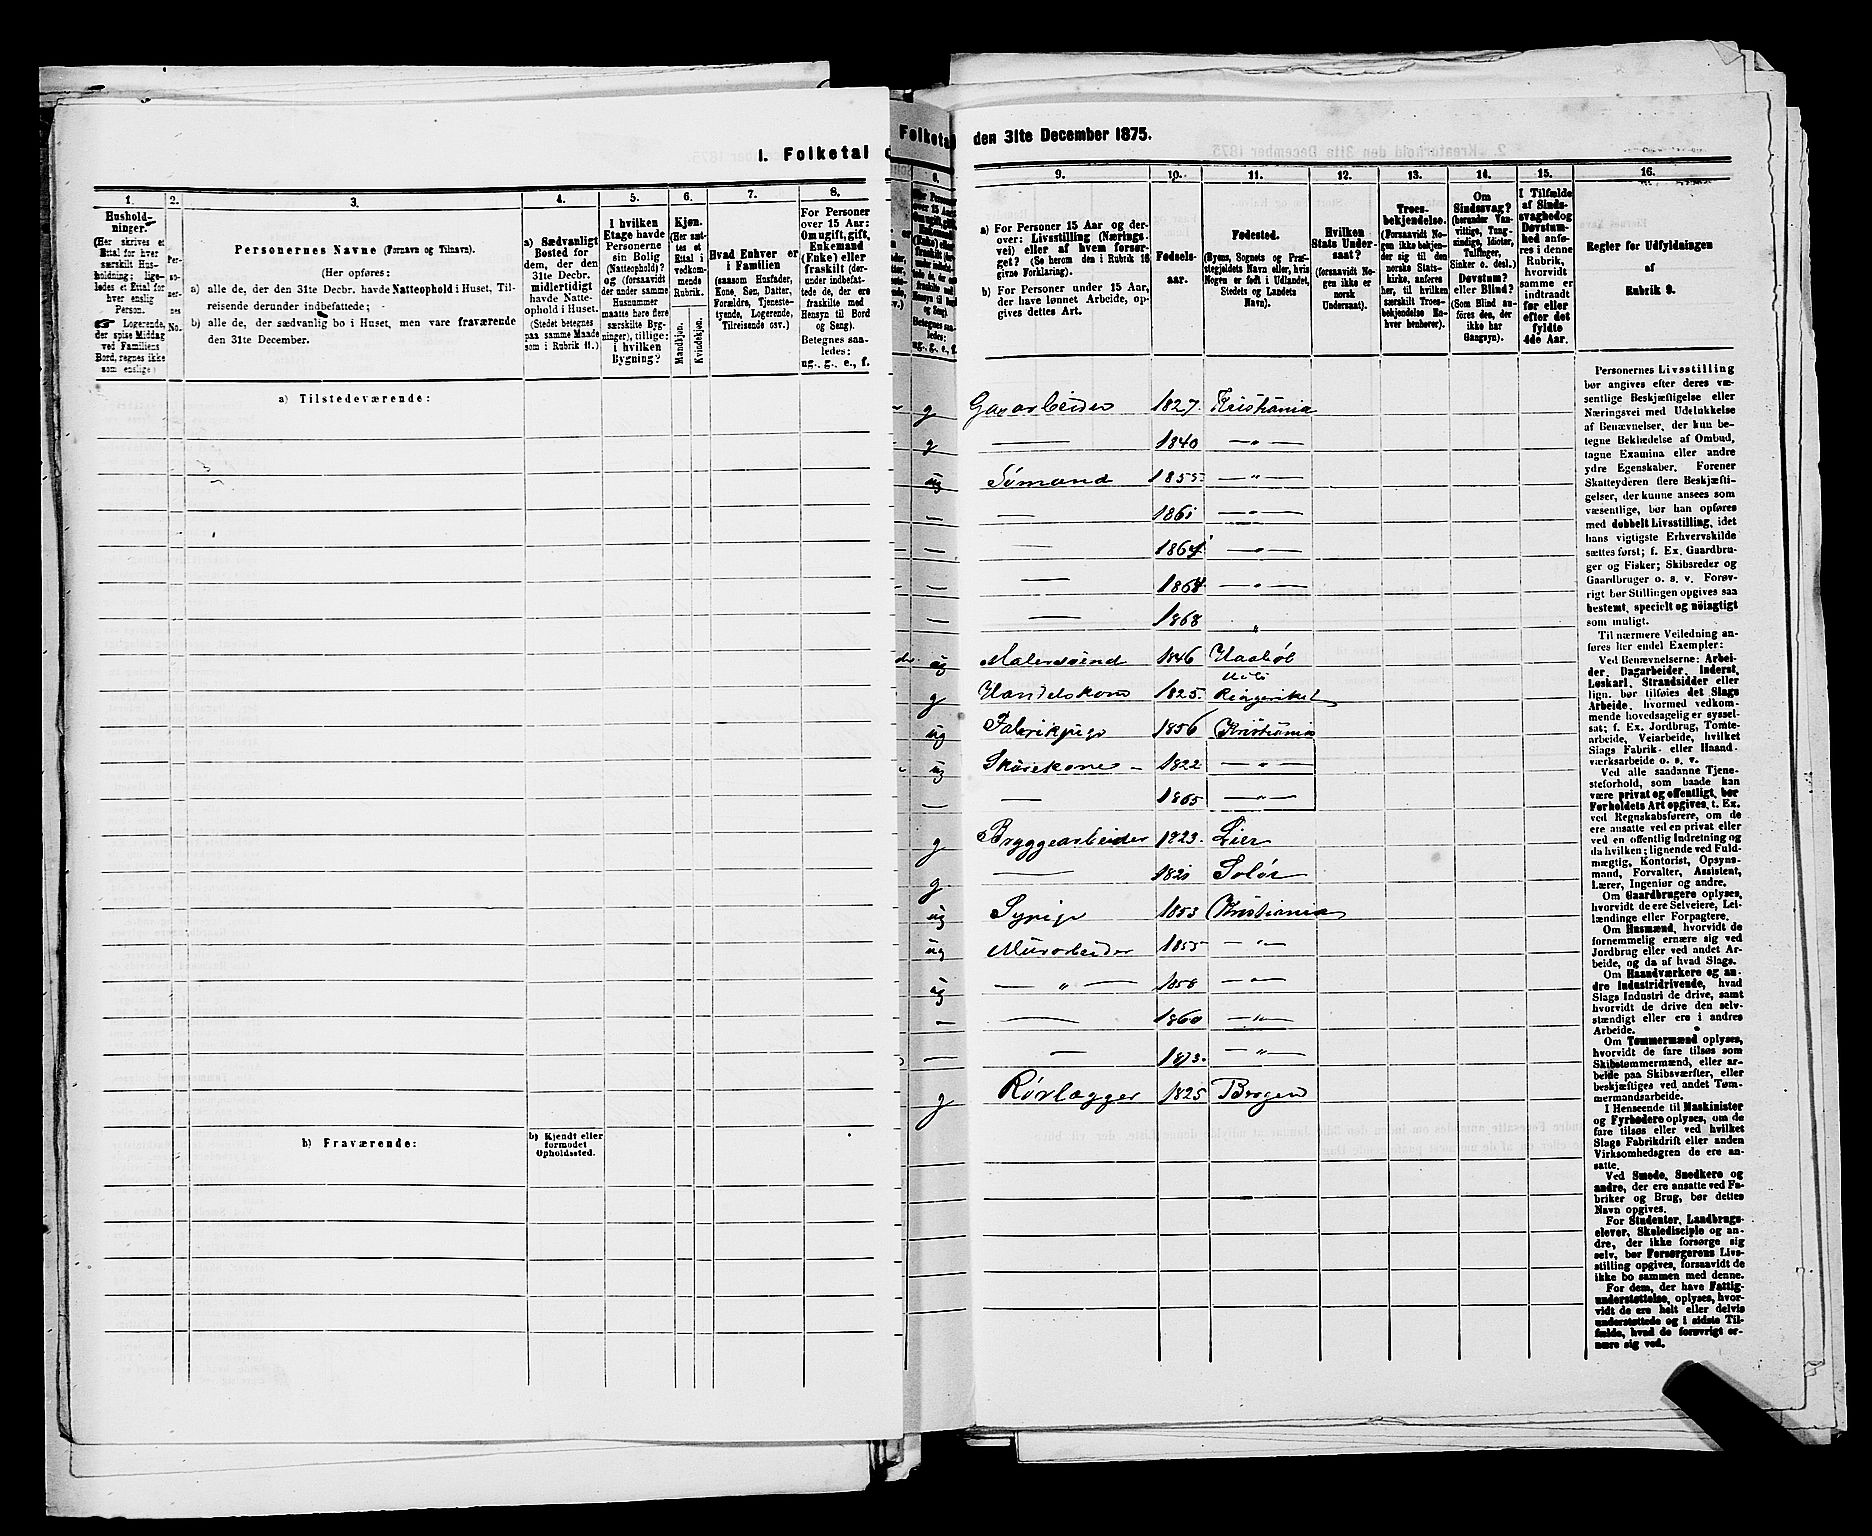 I. Folketal
1.
2.
3.
4.
5.
6.
7.
8.
Hushold-
ninger.
(Her skrives et
Ettal for hver
særskilt Hus-
holdning; lige-
ledes et Ettal for
hver enslig
Person.
☞ Logerende,
der spise Middag
ved Familiens
Bord, regnes ikke
som enslige.)
Per-
so-
ner-
nes
No.
Personernes Navne (Fornavn og Tilnavn).
(Her opføres:
a) alle de, der den 31te Decbr. havde Natteophold i Huset, Til-
reisende derunder indbefattede;
b) alle de, der sædvanlig bo i Huset, men vare fraværende
den 31te December.
a) Sædvanligt
Bosted for
dem, der den
31te Decbr.
midlertidigt
havde Natte-
ophold i Huset.
(Stedet betegnes
paa samme Maade
som i Rubrik 11.)
I hvilken
Etage havde
Personerne
sin Bolig
(Natteophold)?
og (forsaavidt
der under samme
Husnummer
maatte høre flere
særskilte Byg-
ninger), tillige:
i hvilken
Bygning?
Kjøn.
(Her sæt-
tes et
Ettal i
vedkom-
mende
Rubrik.
Mandkjøn.
Kvindekjøn.
Hvad Enhver er
i Familien
(saasom Husfader,
Kone, Søn, Datter,
Forældre, Tjeneste-
tyende, Logerende,
Tilreisende osv.)
For Personer
over 15 Aar:
Om ugift, gift,
Enkemand
(Enke) eller
fraskilt (der-
under indbefat-
tede de, der ere
fraskilte med
Hensyn til Bord
og Seng).
Betegnes saa-
ledes:
ug., g., e., f.
a) Tilstedeværende:
b) Fraværende:
b) Kjendt eller
formodet
Opholdssted.
Folketal den 31te December 1875.
8.
9.
10.
11.
12.
13.
14.
15.
16.
a) For Personer 15 Aar og der-
over: Livsstilling (Nærings-
vei) eller af hvem forsør-
get? (Se herom den i Rubrik 16
givne Forklaring).
b) For Personer under 15 Aar,
der have lønnet Arbeide, op-
gives dettes Art.
Fødsels-
aar.
Fødested.
(Byens, Sognets og Præ-
stegjeldets Navn eller, hvis
Nogen er født i Udlandet,
Stedets og Landets
Navn).
Hvilken
Stats Under-
saat?
(forsaavidt No-
gen ikke er
norsk
Undersaat).
Troes-
bekjendelse.
(Forsaavidt No-
gen ikke bekjen-
der sig til den
norske Stats-
kirke, anføres
her, til hvilken
særskilt Troes-
bekjendelse En-
hver henhører).
Om
Sindssvag?
(herunder Van-
vittige, Tung-
sindige, Idioter,
Tullinger,
Sinker o. desl.)
Døvstum?
eller Blind?
(Som Blind an-
føres den, der
ikke har
Gangsyn).
I Tilfælde
af Sinds-
svaghed og
Døvstum-
hed anfø-
res i denne
Rubrik,
hvorvidt
samme er
indtraadt
før eller
efter det
fyldte
4de Aar.
Regler for Udfyldningen
af
Rubrik 9.
g Gasarbeider 1827. Kristiania
g — 1840 — " —
ug Sømand 1855 — " —
— — 1861 — " —
— — 1864 — " —
— — 1868 — " —
— — 1868 "
ug Malersvend 1846
g Handelskone 1825. Ringeriket
ug Fabrikpige 1856 Kristiania
ug Skurekone — 1822 — " —
— — 1865 — " —
g Bryggearbeider 1823. Lier
g — 1821 Solør
ug Sypige 1853 Kristiania
ug Murarbeider 1855 — " —
ug — " — 1858 — " —
— — 1860 — " —
— — 1873. — " —
g Rørlægger 1825 Bergen
Personernes Livsstilling
bør angives efter deres væ-
sentlige Beskjæftigelse eller
Næringsvei med Udelukkelse
af Benævnelser, der kun be-
tegne Beklædelse af Ombud,
tagne Examina eller andre
ydre Egenskaber. Forener
Skatteyderen flere Beskjæfti-
gelser, der kunne ansees som
væsentlige, bør han opføres
med dobbelt Livsstilling, idet
hans vigtigste Erhvervskilde
sættes først; f. Ex. Gaardbru-
ger og Fisker; Skibsreder og
Gaardbruger o. s. v. Forøv-
rigt bør Stillingen opgives saa
bestemt, specielt og nøiagtigt
som muligt.
Til nærmere Veiledning an-
føres her endel Exempler:
Ved Benævnelserne: Arbei-
der, Dagarbeider, Inderst,
Løskarl, Strandsidder eller
lign. bør tilføies det Slags
Arbeide, hvormed vedkom-
mende hovedsagelig er syssel-
sat; f. Ex. Jordbrug, Tomte-
arbeide, Veiarbeide, hvilket
Slags Fabrik- eller Haand-
værksarbeide o. s. v.
Ved alle saadanne Tjene-
steforhold, som baade kan
være privat og offentligt, bør
Forholdets Art opgives, t. Ex.
ved Regnskabsførere, om de
ere ansatte ved en privat eller
ved en offentlig Indretning og
da hvilken; lignende ved Fuld-
mægtig, Kontorist, Opsyns-
mand, Forvalter, Assistent,
Lærer, Ingeniør og andre.
Om Gaardbrugere oplyses,
hvorvidt de ere Selveiere, Lei-
lændinge eller Forpagtere.
Om Husmænd, hvorvidt de
fornemmelig ernære sig ved
Jordbrug eller ved andet Ar-
beide, og da af hvad Slags.
Om Haandværkere og an-
dre Industridrivende, hvad
Slags Industri de drive, samt
hvorvidt de drive den selv-
stændigt eller ere i andres
Arbeide.
Om Tømmermænd oplyses,
hvorvidt de fare tilsøs som
Skibstømmermænd, eller ar-
beide paa Skibsværfter, eller
beskjæftiges ved andet Tøm-
mermandsarbeide.
I Henseende til Maskinister
og Fyrbødere oplyses, om de
fare tilsøs eller ved hvilket
Slags Fabrikdrift eller anden
Virksomhedsgren de ere an-
satte.
Ved Smede, Snedkere og
andre, der ere ansatte ved Fa-
briker og Brug, bør dettes
Navn opgives.
For Studenter, Landbrugs-
elever, Skoledisciple og an-
dre, der ikke forsørge sig
selv, bør Forsørgerens Livs-
stilling opgives, forsaavidt de
ikke bo sammen med denne.
For dem, der have Fattig-
understøttelse, oplyses, hvor-
vidt de ere helt eller delvis
understøttede og i sidste Til-
fælde, hvad de forøvrigt er-
nære sig ved.